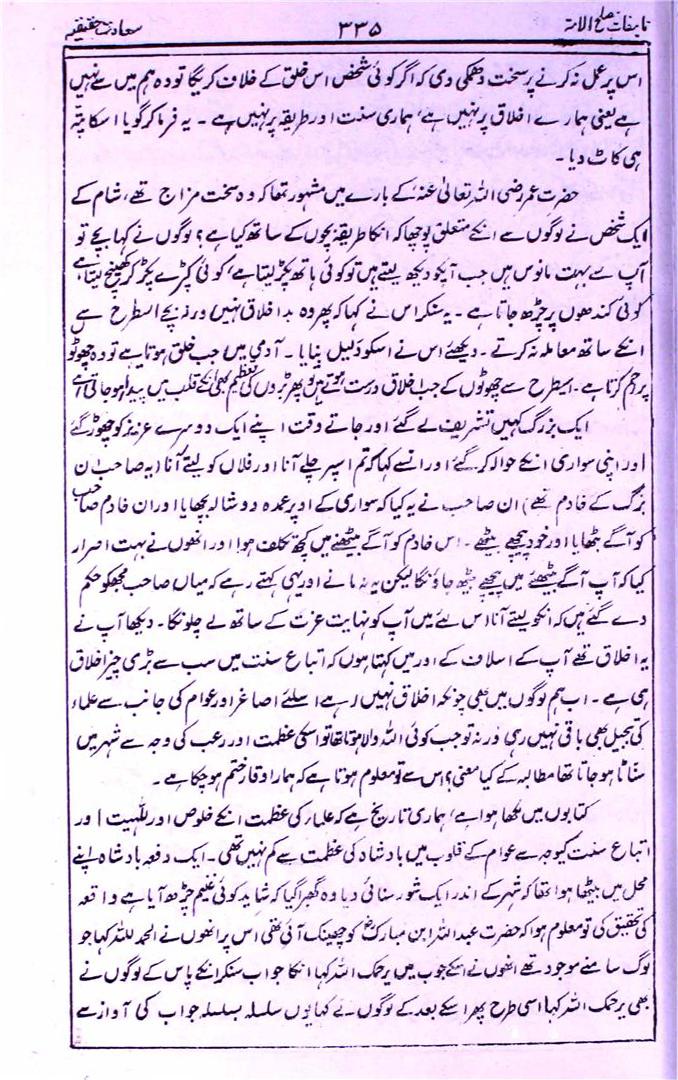 تالیفات مصلح الامۃ ۳۳۵ سعادت حقیقیہ
اس پر عمل نہ کرنے پر سخت دھمکی دی کہ اگر کوئی شخص اس خلق کے خلاف کریگا تو وہ ہم میں سے نہیں
ہے یعنی ہمارے اخلاق پر نہیں ہے، ہماری سنت اور طریقہ پر نہیں ہے ۔ یہ فرما کر گویا اسکا پتہ
ہی کاٹ دیا ۔
حضرت عمر رضی اللہ تعالیٰ عنہ کے بارے میں مشہور تھا کہ وہ سخت مزاج تھے، شام کے
ایک شخص نے لوگوں سے انکے متعلق پوچھا کہ انکا طریقہ بچوں کے ساتھ کیا ہے؟ لوگوں نے کہا بچے تو
آپ سے بہت مانوس ہیں جب آپکو دیکھ لیتے ہیں تو کوئی ہاتھ پکڑ لیتا ہے، کوئی کپڑے پکڑ کر کھینچ لیتا ہے،
کوئی کندھوں پر چڑھ جاتا ہے ۔ یہ سنکر اس نے کہا کہ پھر وہ بد اخلاق نہیں ورنہ بچے اسطرح سے
انکے ساتھ معاملہ نہ کرتے ۔ دیکھئے اس نے اسکو دلیل بنایا ۔ آدمی میں جب خلق ہوتا ہے تو وہ چھوٹو
پر رحم کرتا ہے ۔ اسطرح سے چھوٹوں کے جب اخلاق درست ہوتے ہیں تو پھر بڑوں کی تعظیم بھی انکے قلب میں پیدا ہو جاتی ہے
ایک بزرگ کہیں تشریف لے گئے اور جاتے وقت اپنے ایک دوسرے عزیز کو چھوڑ گئے
اور اپنی سواری انکے حوالہ کر گئے اور انسے کہا کہ تم اسپر چلے آنا اور فلاں کو لیتے آنا (یہ صاحب ان
بزرگ کے خادم تھے) ان صاحب نے یہ کیا کہ سواری کے اوپر عمدہ دوشالہ بچھایا اور ان خادم صاحب
کو آگے بٹھایا اور خود پیچھے بیٹھے ۔ اس خادم کو آگے بیٹھنے میں کچھ تکلف ہوا اور انھوں نے بہت اصرار
کیا کہ آپ آگے بیٹھئے میں پیچھے بیٹھ جاؤنگا لیکن یہ نہ مانے اور یہی کہتے رہے کہ میاں صاحب مجھکو حکم
دے گئے ہیں کہ انکو لیتے آنا اس لئے میں آپ کو نہایت عزت کے ساتھ لے چلونگا ۔ دیکھا آپ نے
یہ اخلاق تھے آپ کے اسلاف کے اور میں کہتا ہوں کہ اتباع سنت میں سب سے بڑی چیز اخلاق
ہی ہے ۔ اب ہم لوگوں میں بھی چونکہ اخلاق نہیں رہے اسلئے اصاغر اور عوام کی جانب سے علماء
کی تبجیل بھی باقی نہیں رہی ورنہ تو جب کوئی اللہ والا ہوتا تھا تو اسکی عظمت اور رعب کی وجہ سے شہر میں
سناٹا ہو جاتا تھا مطالبہ کے کیا معنی؟ اس سے تو معلوم ہوتا ہے کہ ہمارا وقار ختم ہو چکا ہے ۔
کتابوں میں لکھا ہوا ہے، ہماری تاریخ ہے کہ علماء کی عظمت انکے خلوص اور للہیت اور
اتباع سنت کیوجہ سے عوام کے قلوب میں بادشاہ کی عظمت سے کم نہیں تھی ۔ ایک دفعہ بادشاہ اپنے
محل میں بیٹھا ہوا تھا کہ شہر کے اندر ایک شور سنائی دیا وہ گھبرا گیا کہ شاید کوئی غنیم چڑھ آیا ہے واقعہ
کی تحقیق کی تو معلوم ہوا کہ حضرت عبد اللہ ابن مبارکؒ کو چھینک آئی تھی اس پر انھوں نے الحمد للہ کہا جو
لوگ سامنے موجود تھے انھوں نے انکے جوب میں یرحمک اللہ کہا انکا جواب سنکر انکے پاس کے لوگوں نے
بھی یرحمک اللہ کہا اسی طرح پھر اسکے بعد کے لوگوں نے کہا یوں سلسلہ بسلسلہ جواب کی آواز سے